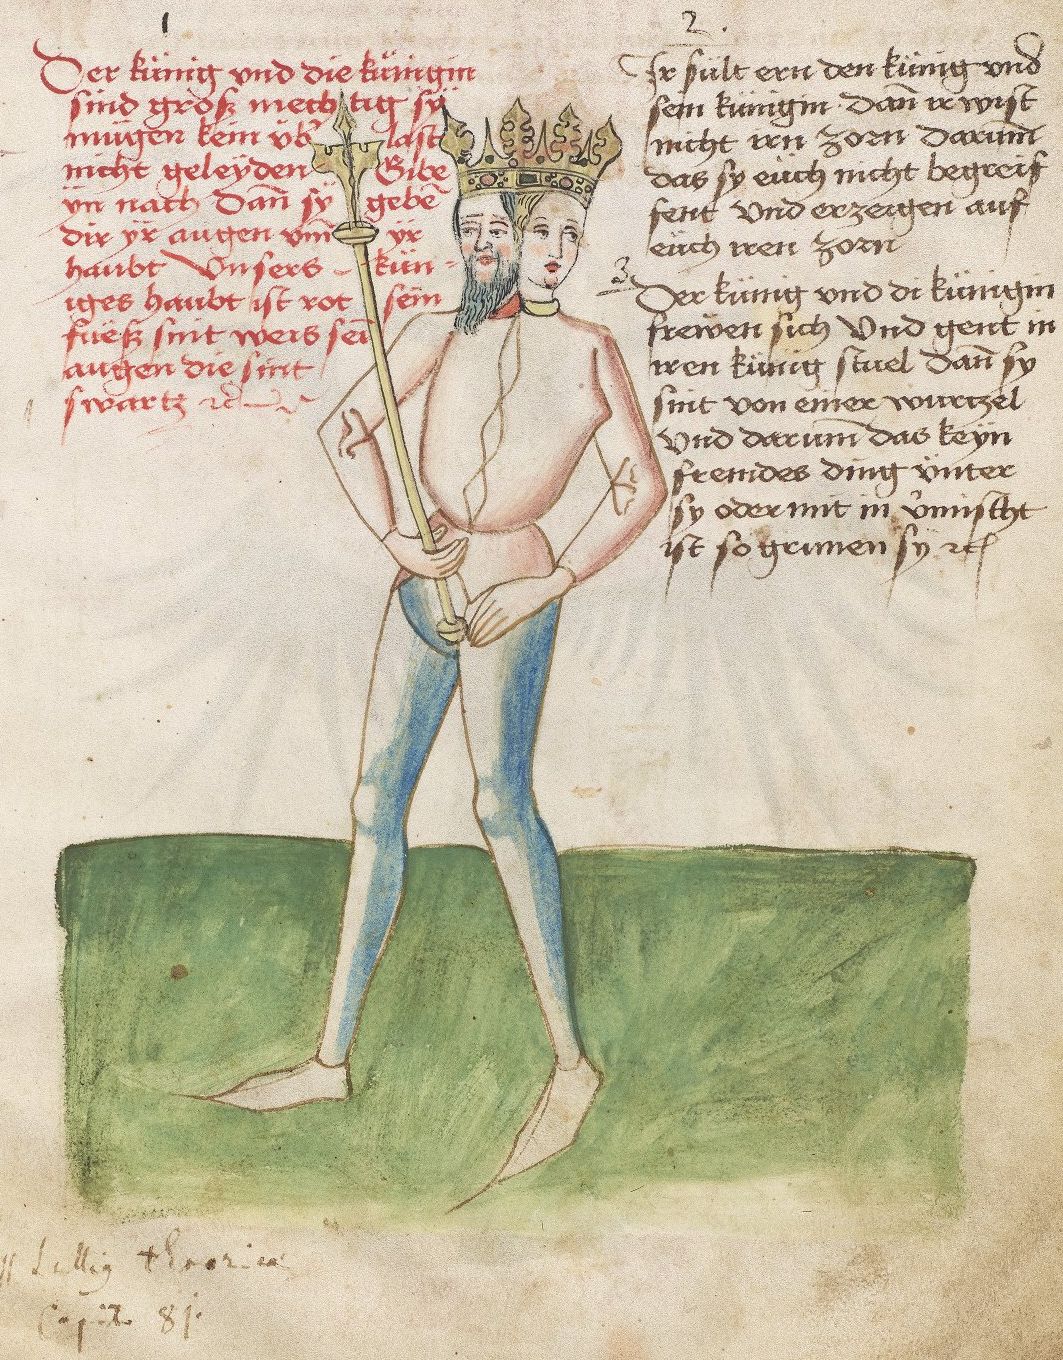 1
Der künig vnd die künigin
sind gros mechtig sy
mügen kein üb last
nicht geleyden Gibe
yn nach Dan̄ sy gebē
dir yr augen vm̄ yr
haubt Vnsers kün-
iges haubt ist rot sein
füeß sint weis sei
augen die sint
swartz ꝛc
2.
Ir sült ern den künig vnd
sein künigin Dan̄ ir wist
nicht irn zorn Darum̄
das sy eüch nicht begreif
fent Vnd erzeigen auf
eüch iren zorn
3
Der künig vnd di künigin
frewen sich Vnd gent in
iren künig stuel Dan̄ sy
sint von einer wurtzel
Vnd darum̄ das keyn
fremdes ding vnter
sy oder mit in v̄mischt
ist so grunen sy ꝛc
Lullig theorica
Capit 81.